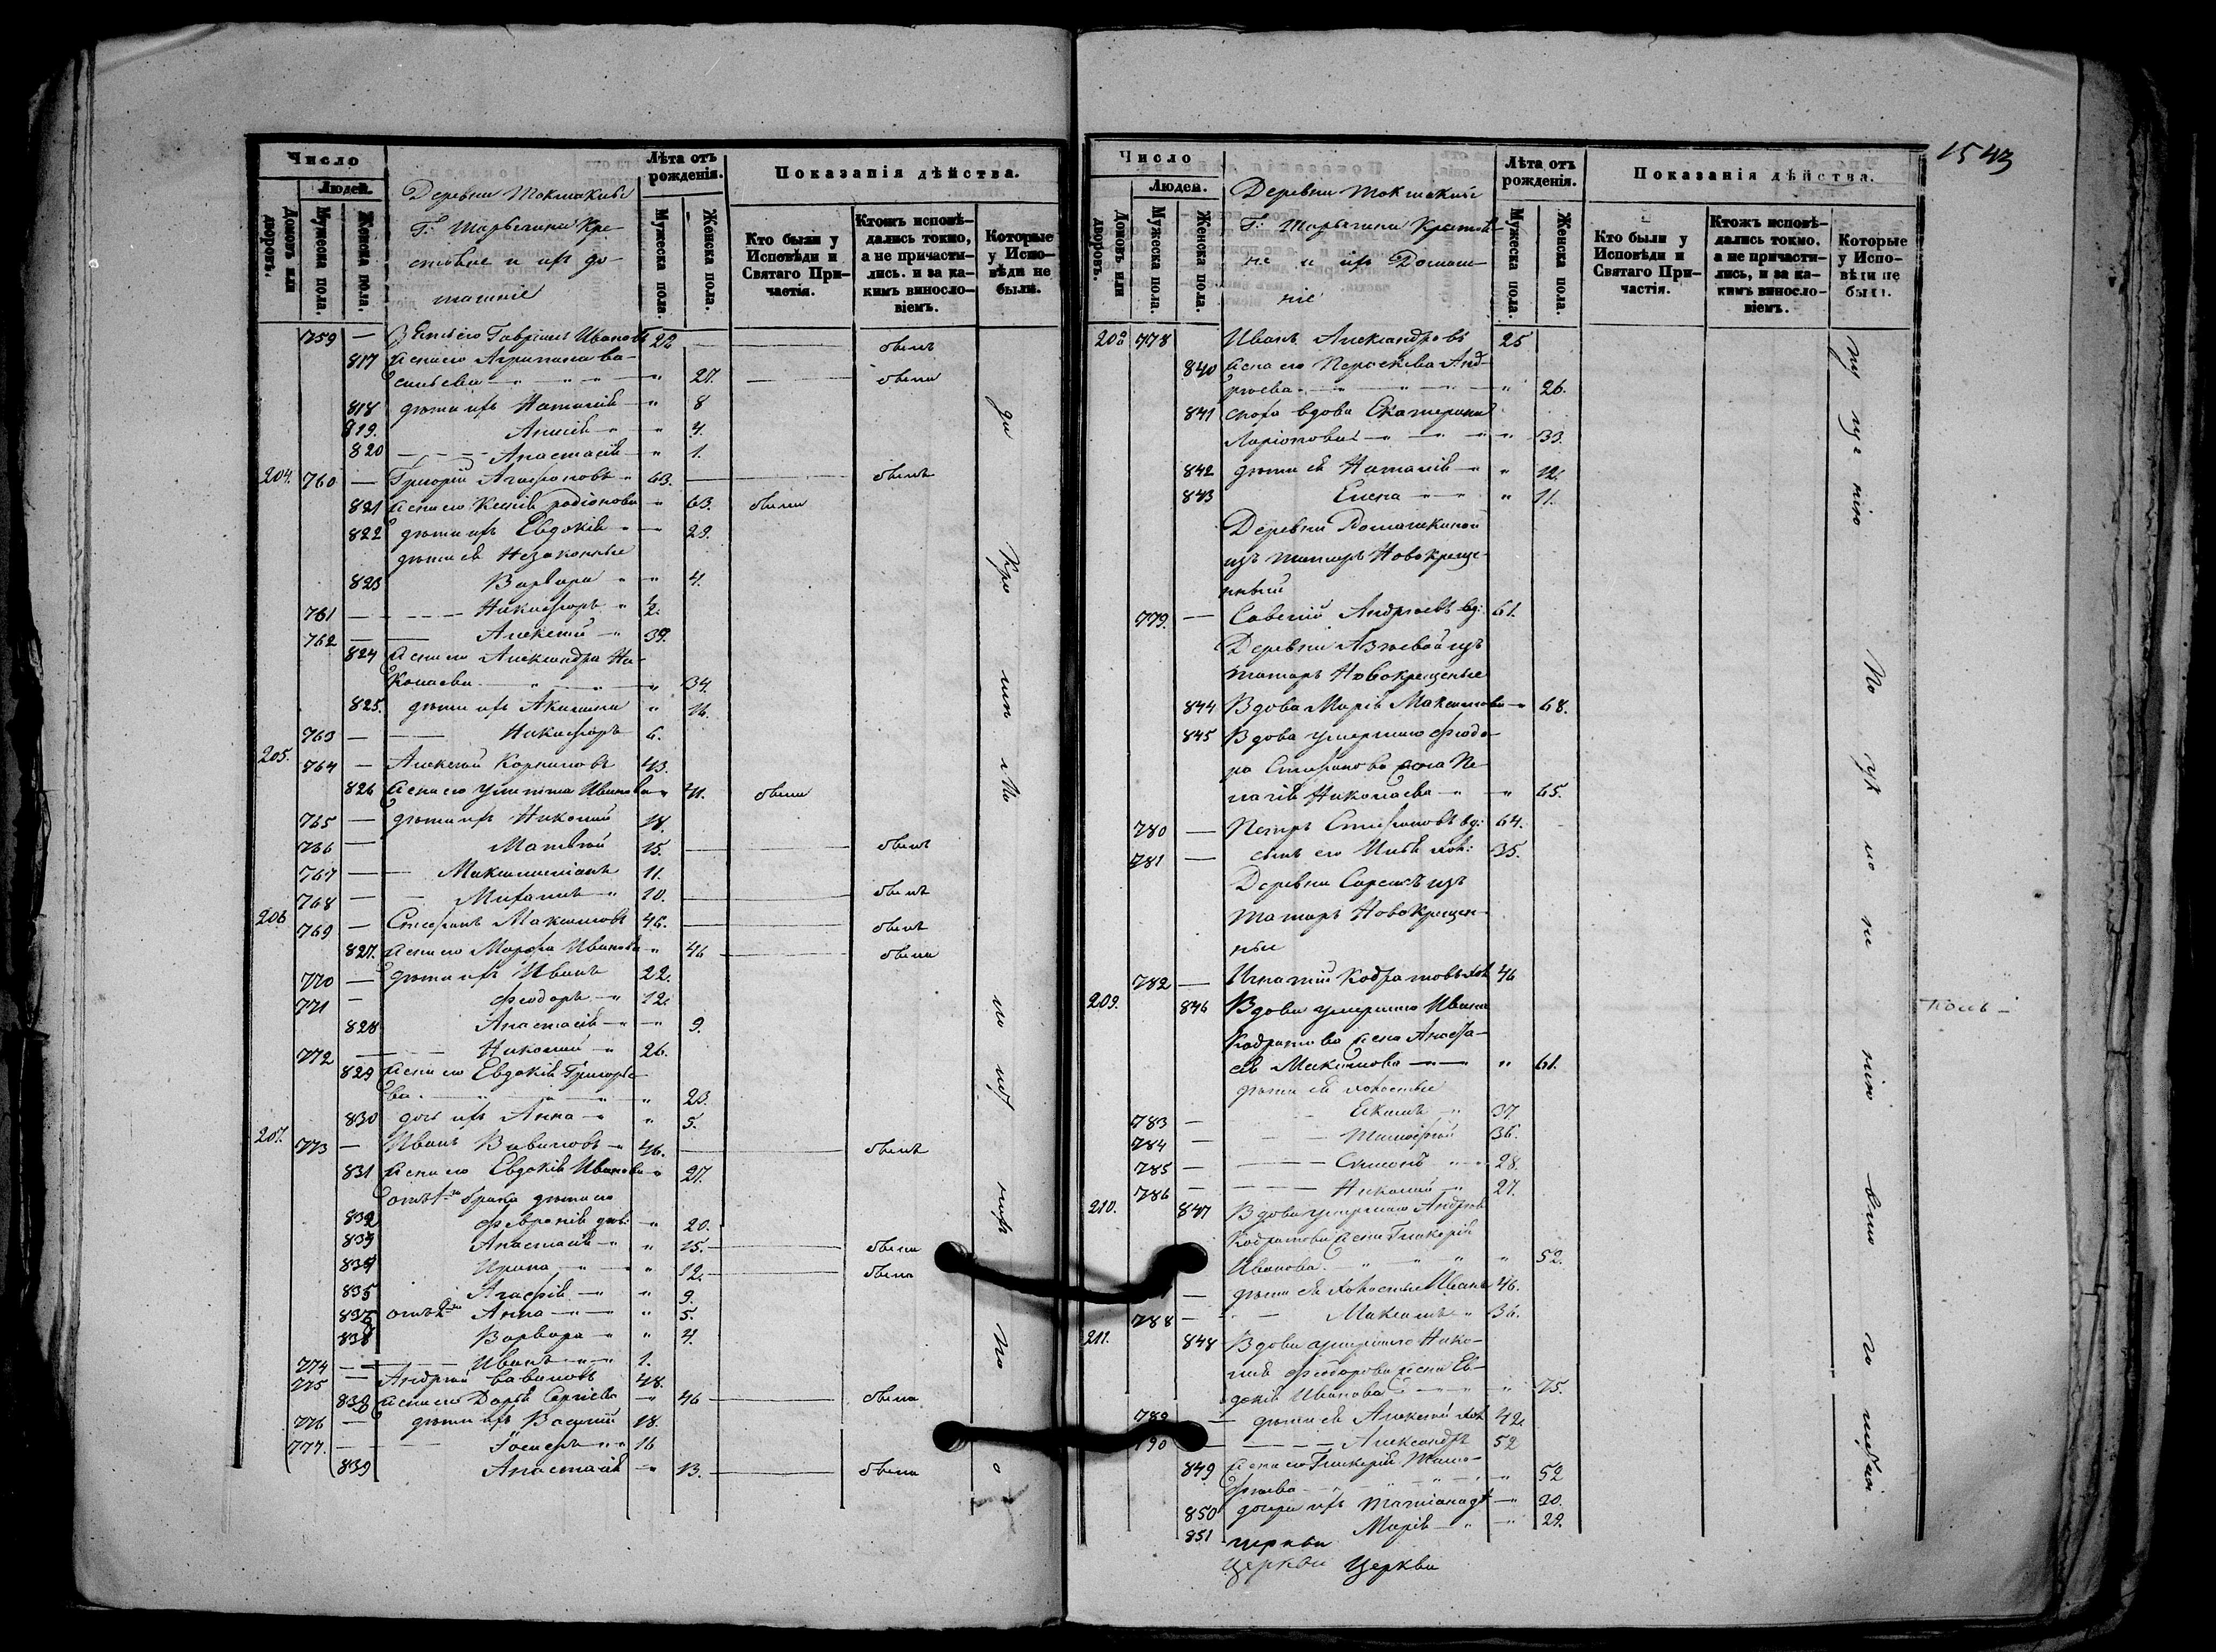 Число
Людей.
Домовъ или дворовъ.
Мужеска пола.
Женска пола.
Деревни Токмаклы
Г. Шарыгина Кре-
стьяне и ихъ до-
машніе
Лѣта отъ рожденія.
Мужеска пола.
Женска пола.
Показанія дѣйства.
Кто были у Исповѣди и Святаго При-частія.
Ктожъ исповѣ-дались токмо, а не причасти-лись. и за ка-кимъ винословіемъ.
Которые у Испо-вѣди не были.
759 — Гавріилъ Ивановъ 22 — былъ
817 жена его Агрипина Ва-
сильева " 27. — была
818 дѣти ихъ Наталія " 8
819. Анисія " 4.
820 Анастасія " 1.
204. 760 — Григорій Агафоновъ 63. — былъ
821 жена его Ксенія Родіонова " 63. была
822 дѣти ихъ Евдокія — 23.
дѣти ея Незаконные
823 Варвара " 4.
761 — Никифоръ
762 — Алексѣй 39.
824 жена его Александра Ни-
колаева " 34.
825. дѣти ихъ Акилина "
763 — Никифоръ 6.
205. 764 — Алексѣй Корниловъ 43.
826 жена его Улитта Иванова 41. была
765 — дѣти ихъ Николай 18.
766 — Матвѣй 15. — былъ
767 — Максимиліанъ 11.
768 — Михаилъ 10. — былъ
206 769 — Стефанъ Максимовъ 46. — былъ
827. жена его Марфа Иванова " 46 — была
770 — дѣти ихъ Иванъ 22.
771 — Феодоръ 12.
828 Анастасія — 9.
772 — Николай 26.
829 жена его Евдокія Григорье-
ва. " 23.
830 дочь ихъ Анна " 5.
207. 773 — Иванъ Вавиловъ 46. — былъ
831 жена его Евдокія Иванова " 27.
отъ 1-го брака дѣти его
832 Февронія дѣв: " 20.
833 Анастасія " 15. — была
834 Ирина " 12. — была
835 Агафія " 9.
836 отъ 2-го Анна " 5.
Варвара " 4.
774 — Иванъ 1.
775 — Андрей Вавиловъ 48.
838 жена его Дарья Сергѣева — 46 — была
776 — дѣти ихъ Василій 18.
777. — Іосифъ 16
839 Анастасія — 13. — была
1543
Число
Людей.
Домовъ или дворовъ.
Мужеска пола.
Женска пола.
Деревни Токмаклы
Г. Шарыгина Крестья-
не и ихъ Домаш-
ніе
Лѣта отъ рожденія.
Мужеска пола.
Женска пола.
Показанія дѣйства.
Кто были у Исповѣди и Святаго При-частія.
Ктожъ исповѣ-дались токмо. а не причасти-лись, и за ка-кимъ винословіемъ.
Которые у Испо-вѣди не были.
208 778 Иванъ Александровъ 25
840 жена его Параскева Анд-
рѣева " 26.
841 сноха вдова Екатерина
Ларіонова " 33.
842 дѣти ея Наталія " 12.
843 Елена " 11.
Деревни Ромашкиной
изъ татаръ Новокреще-
нный
779. — Савелій Андрѣевъ вд: 61.
Деревни Азѣевой изъ
татаръ Новокрещеные
844 Вдова Марія Максимова 68.
845 Вдова умершаго Феодо-
ра Стефанова жена Пе-
лагія Николаева " 65.
780 — Петръ Стефановъ вд: 64.
781 — сынъ его Илья хол: 35.
изъ
татаръ Новокрещен-
ные
782 — Игнатій Кодратовъ хол 46
209. 846 Вдова умершаго Ивана
Кодратова жена Анаста-
сія Максимова " 61.
дѣти ея холостые
783 — 37.
784 — Тимофей 36.
785 — Симонъ 28.
786 — Николай 27.
210. 847 Вдова умершаго Андрѣя
Кодратова жена Гликерія
Иванова. " 52.
— дѣти ея холостые Иванъ 46.
788 — Максимъ 36.
211. 848 Вдова умершаго Нико-
лая Феодорова жена Ев-
докія Иванова " 75.
789 — дѣти ея Алексѣй хол 42
790 — Александръ 52
849 жена его Гликерія Тимо-
фѣева " 52
850 дочери ихъ Татіана дѣ — 30.
851 Марія — 29.
церкви
церкви Церкви